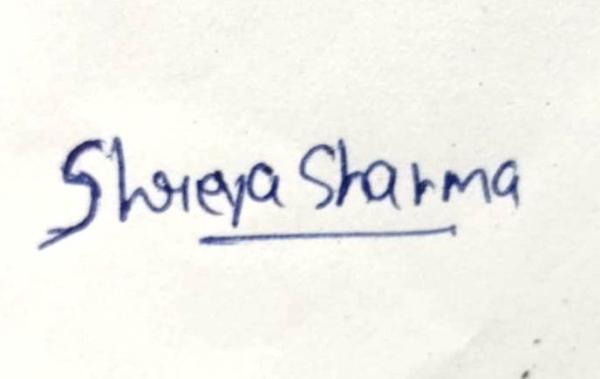 Shreya Sharma